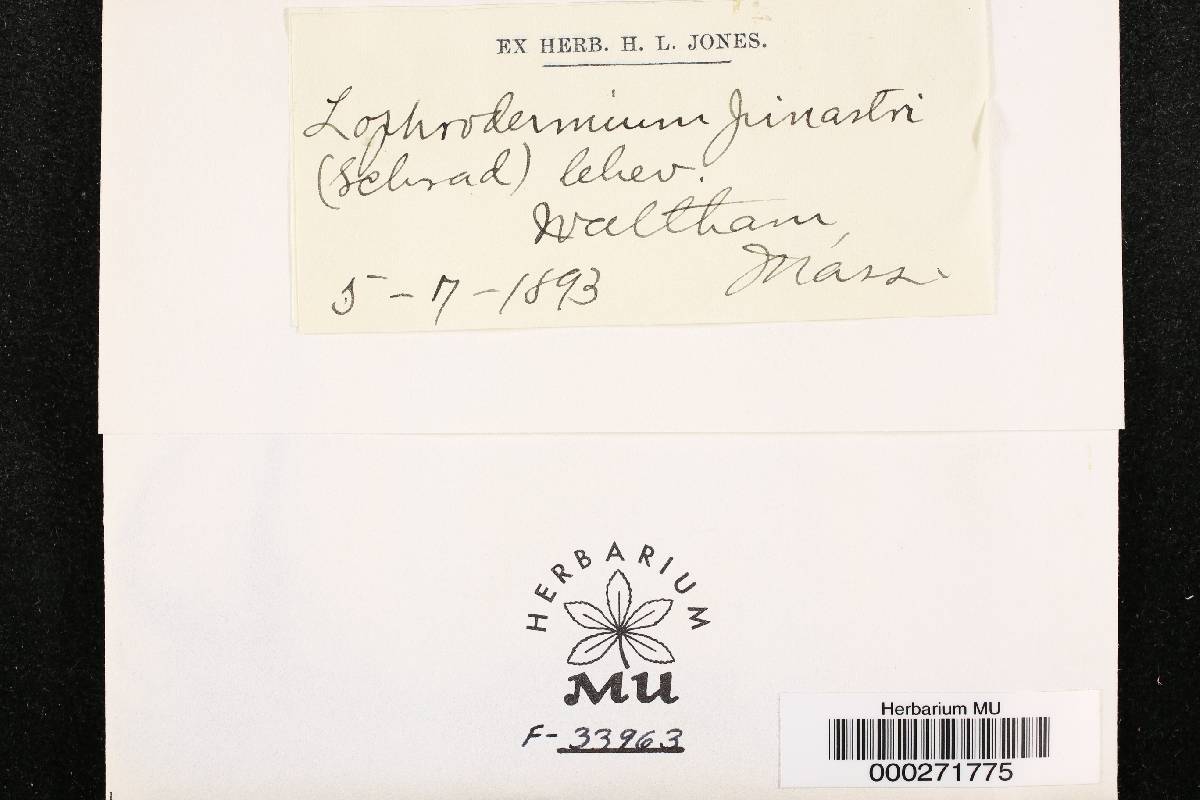 EX HERB. H. L. JONES.
Lophrodermium pinastri
(Schrad) Chev.
Waltham,
Mass.
5-7-1893
HERBARIUM
MU
F-33963
Herbarium MU
000271775